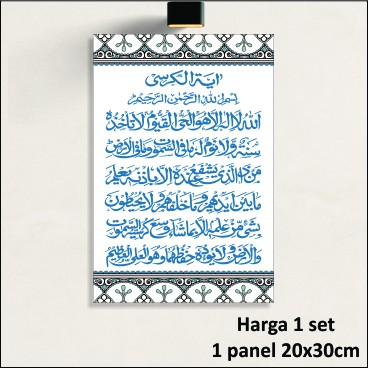 اية الكرسى
بسم الله الرحمن الرحيم
الله لا اله الا هو الحى القيوم لا تأخذه
سنة ولا نوم له ما فى السموت وما فى الارض
من ذا الذى يشفع عنده الا باذنه يعلم
ما بين ايديهم وما خلفهم ولا يحيطون
بشىء من علمه الا بما شاء وسع كرسيه السموت
والارض ولا يؤده حفظهما وهو العلى العظيم
Harga 1 set
1 panel 20x30cm